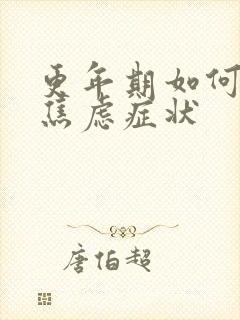 更年期如何
焦虑症状
唐伯超